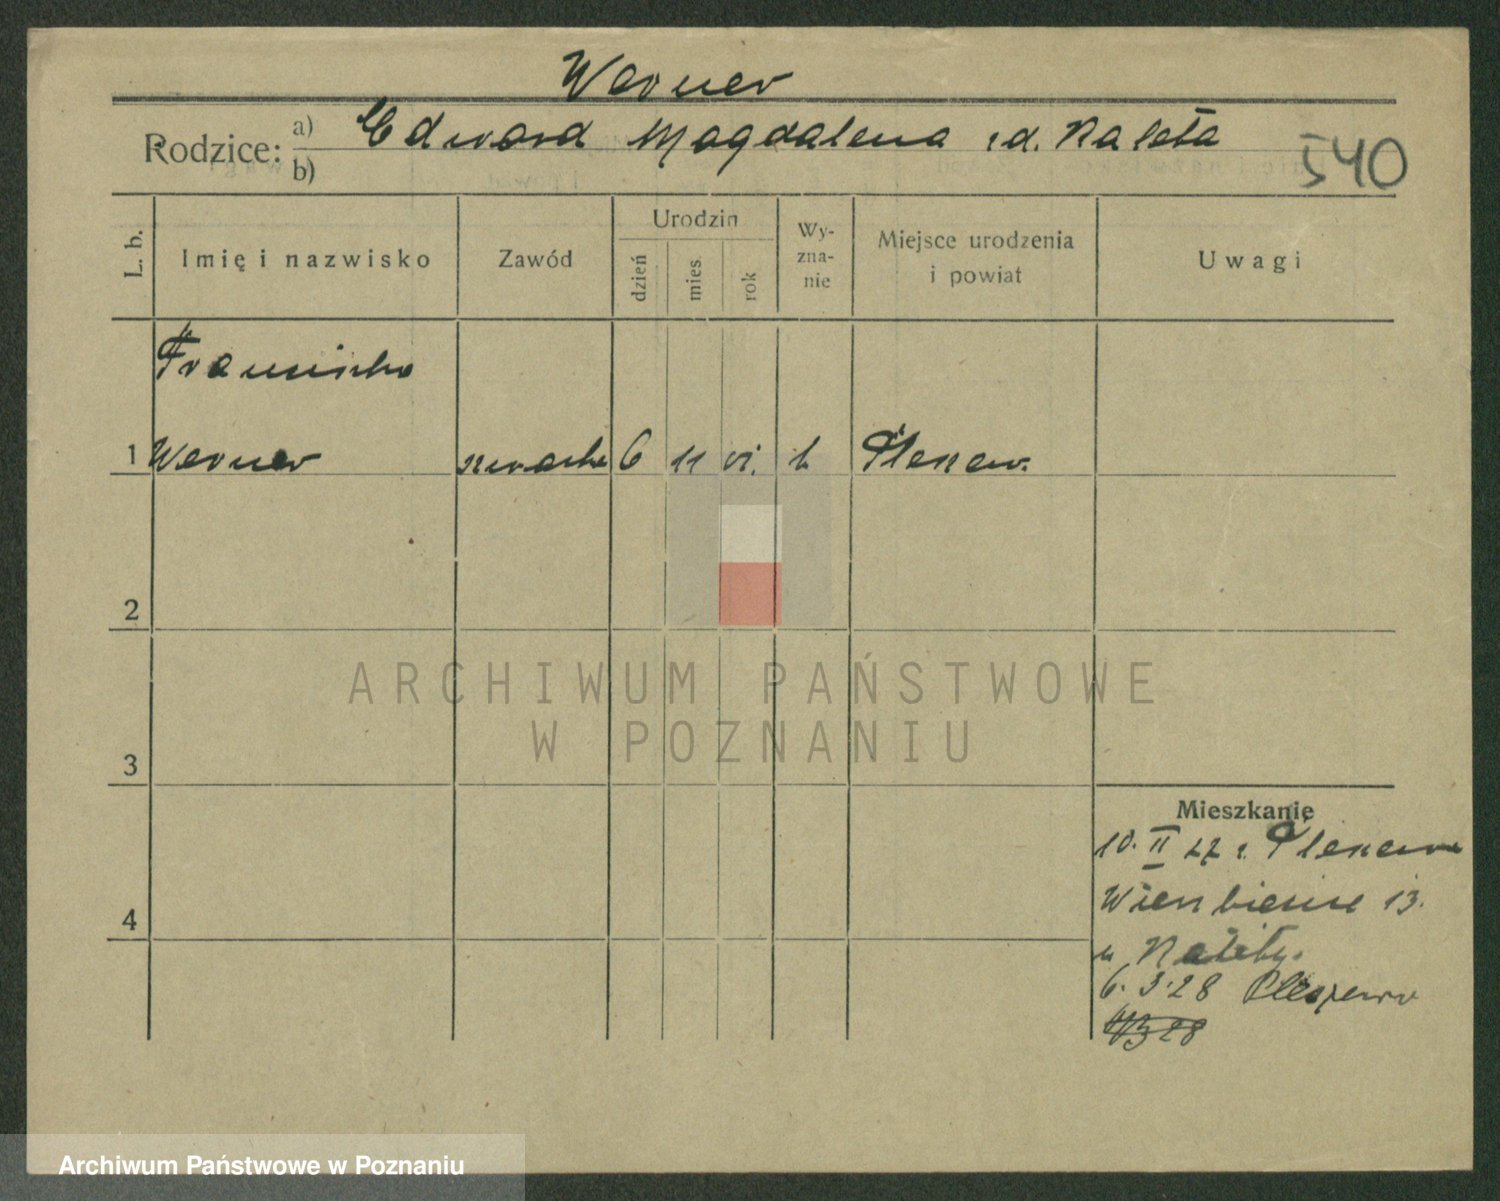 Werner
Rodzice: a) Edward Magdalena rd. Naleta
b)
540
L. b.
Imię i nazwisko
Zawód
Urodzin
dzień
mies.
rok
Wy-
zna-
nie
Miejsce urodzenia
i powiat
Uwagi
1 Werner szwaczka 6 11 k Pleszew.
2
3
4
Mieszkanie
10. II 27 r. Pleszew
13.
u Nalety.
6. 3. 28 Pleszew
ARCHIWUM PAŃSTWOWE
W POZNANIU
Archiwum Państwowe w Poznaniu